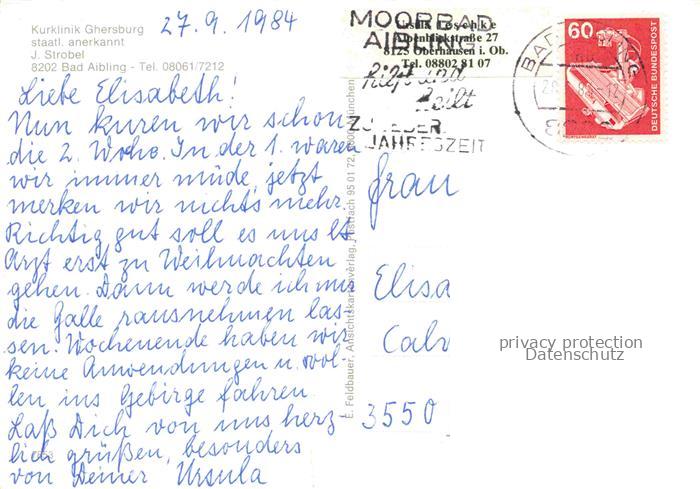 Kurklinik Ghersburg
staatl. anerkannt
J. Strobel
8202 Bad Aibling - Tel. 08061/7212
27.9.1984
Liebe Elisabeth!
Nun kuren wir schon
die 2. Woho. In der 1. waren
wir immer müde, jetzt
merken wir nichts mehr.
Richtig gut soll es uns lt
Arzt erst zu Weihnachten
gehen. Dann werde ich mir
die Galle rausnehmen las-
sen. Wochenende haben wir
keine Anwendungen u. wol-
len ins Gebirge fahren.
Laß Dich von uns herz-
lich grüßen, besonders
von Deiner Ursula
E. Feldbauer, Ansichtskartenverlag, Postfach 95 01 72, 8000 München
MOORBAD
AIBLING
hilft und
heilt
ZU JEDER
JAHRESZEIT
Alpenblickstraße 27
8125 Oberhausen i. Ob.
Tel. 08802 81 07
BAD
60
DEUTSCHE BUNDESPOST
Frau
Elisa
Calv
3550
privacy protection
Datenschutz